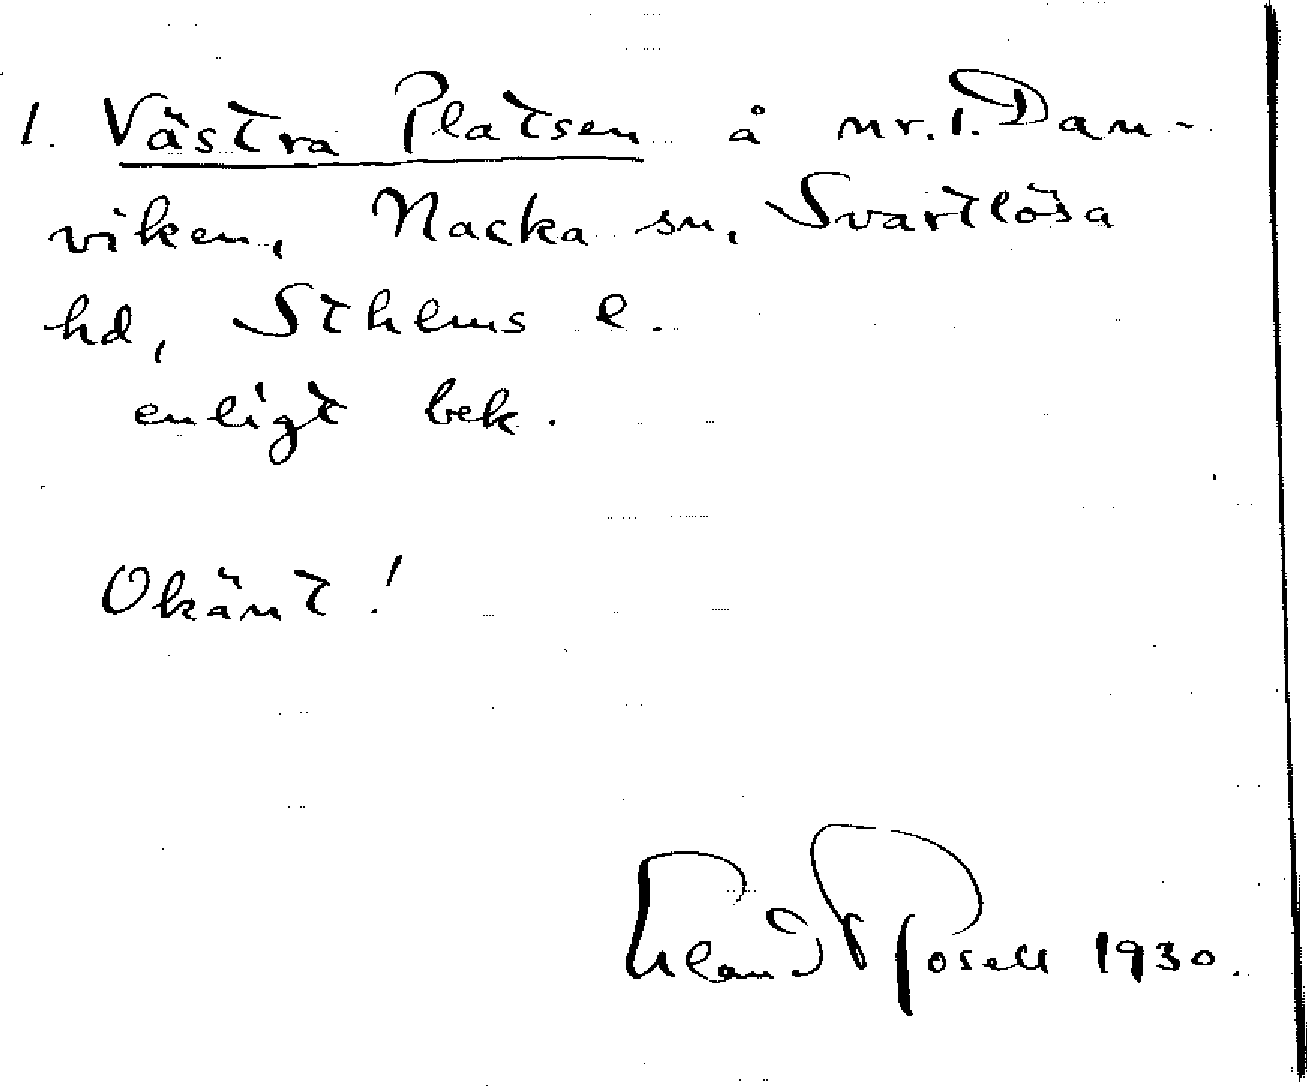 1. Västra Platsen å nr. 1. Dan-
viken, Nacka sn, Svartlösa
hd, Sthlms l.
enligt bek.
Okänt!
Erland Rosell 1930.